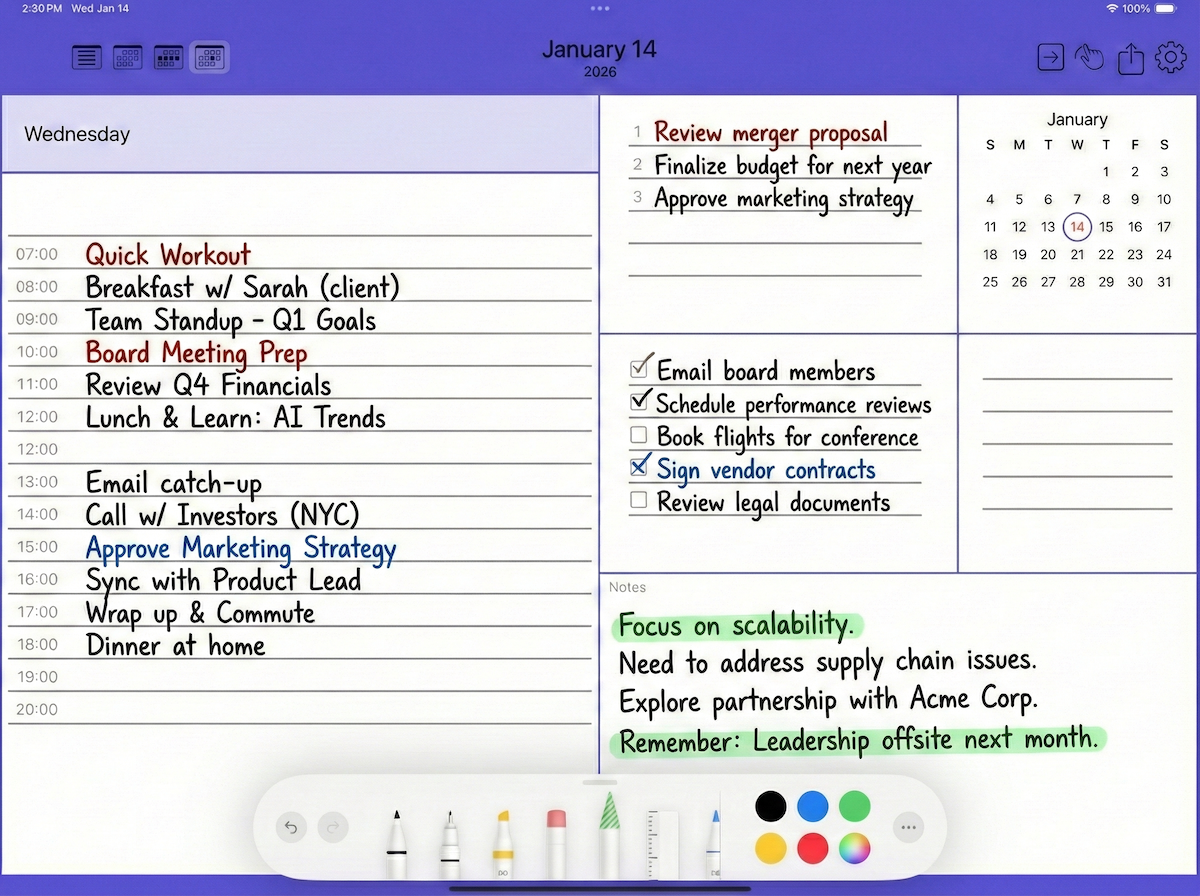 2:30 PM Wed Jan 14
100%
January 14
2026
Wednesday
07:00 Quick Workout
08:00 Breakfast w/ Sarah (client)
09:00 Team Standup - Q1 Goals
10:00 Board Meeting Prep
11:00 Review Q4 Financials
12:00 Lunch & Learn: AI Trends
12:00
13:00 Email catch-up
14:00 Call w/ Investors (NYC)
15:00 Approve Marketing Strategy
16:00 Sync with Product Lead
17:00 Wrap up & Commute
18:00 Dinner at home
19:00
20:00
1 Review merger proposal
2 Finalize budget for next year
3 Approve marketing strategy
January
S M T W T F S
1 2 3
4 5 6 7 8 9 10
11 12 13 14 15 16 17
18 19 20 21 22 23 24
25 26 27 28 29 30 31
Email board members
Schedule performance reviews
Book flights for conference
Sign vendor contracts
Review legal documents
Notes
Focus on scalability.
Need to address supply chain issues.
Explore partnership with Acme Corp.
Remember: Leadership offsite next month.